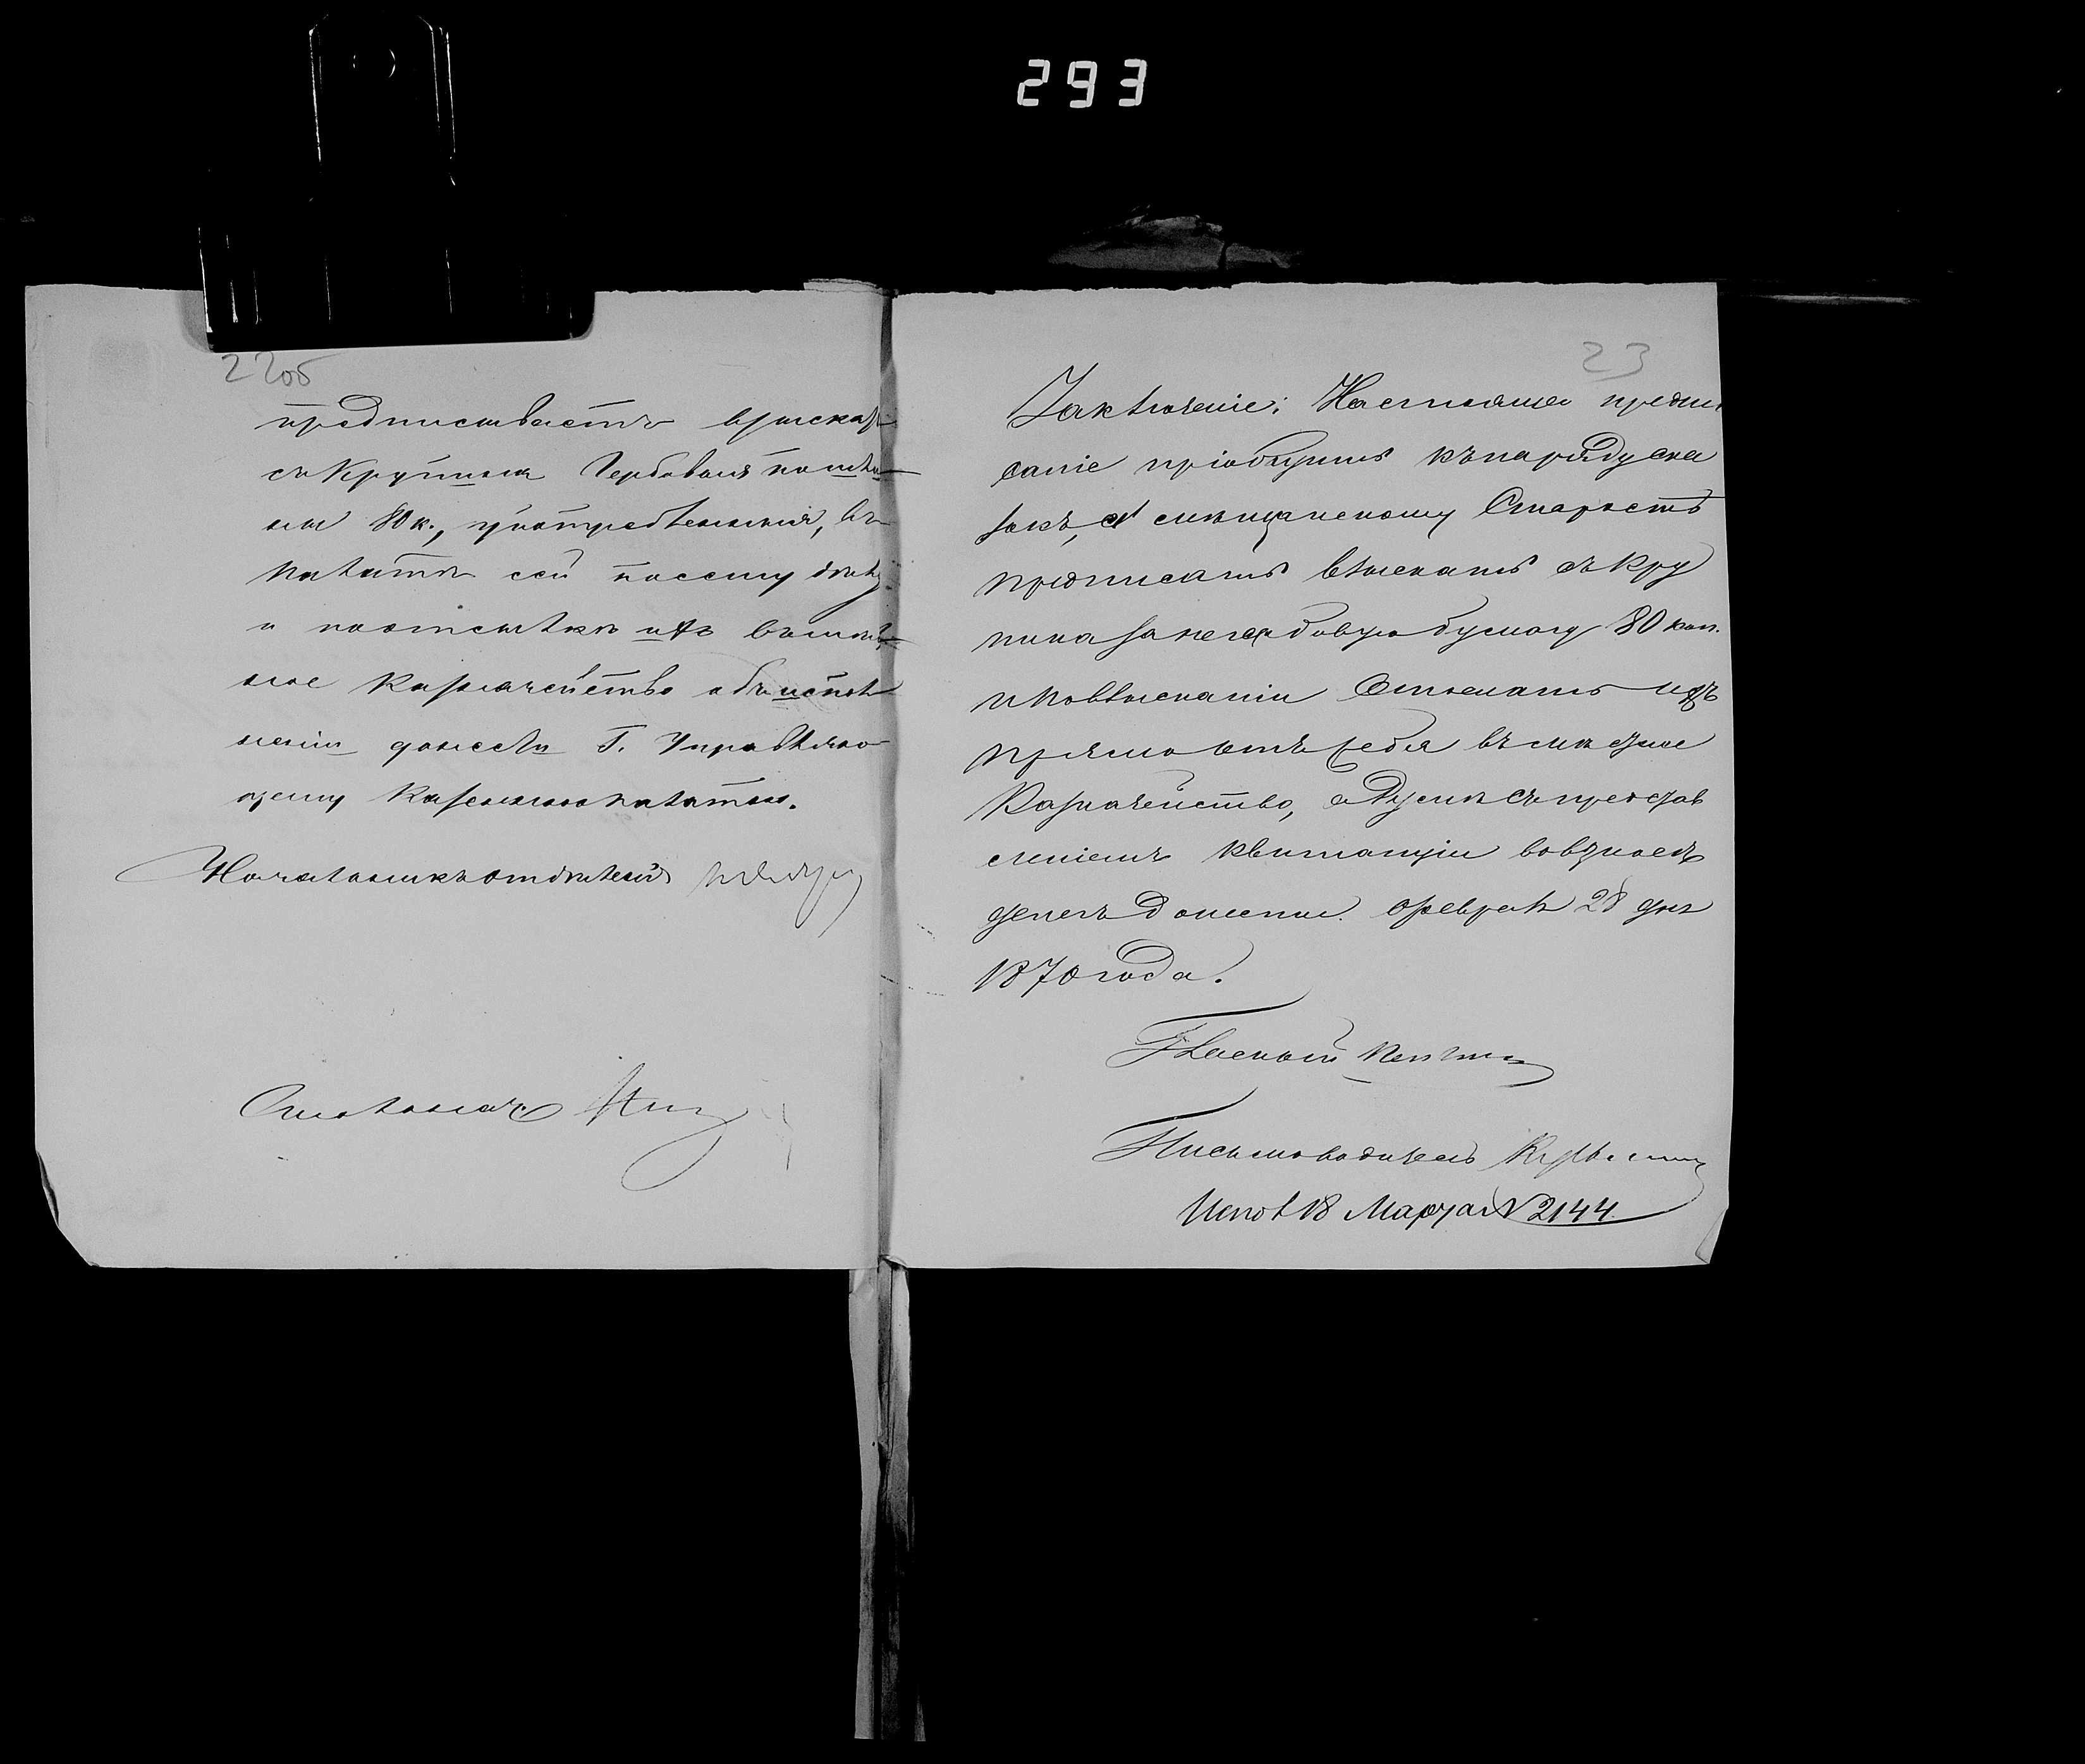 293
22об
предписываетъ взыскать
съ Крупина Гербовыя пошли
ны 80 к., употребленныя, въ
палатѣ сей по сему дѣлу
и по отсылкѣ ихъ въ мѣст
ное Казначейство объ испол
неніи донести Г. Управляю
щему Казенною палатою.
Начальникъ отдѣленія
Столоначальникъ
23
Заключеніе: Настоящее предпи
саніе пріобщить къ наряду ска
зокъ, а мѣщанскому Старостѣ
предписать взыскать съ Кру
пина за гербовую бумагу 80 коп.
и по взысканіи отослать ихъ
прямо отъ себя въ мѣстное
Казначейство, а Думѣ съ представ
леніемъ квитанціи во взносѣ
денегъ донести. Февраля 28 дня
1870 года.
Гласный
Письмоводитель
Испол 18 Марта № 2144